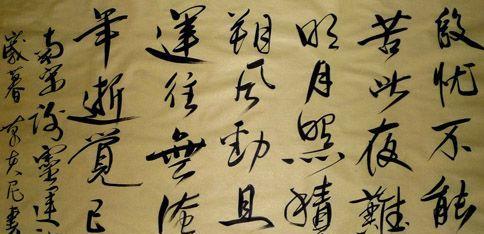 殷忧不能
苦此夜難
明月照積
朔风勁且
運往無淹
年逝覺已
南宋謝靈運詩
歲暮 書